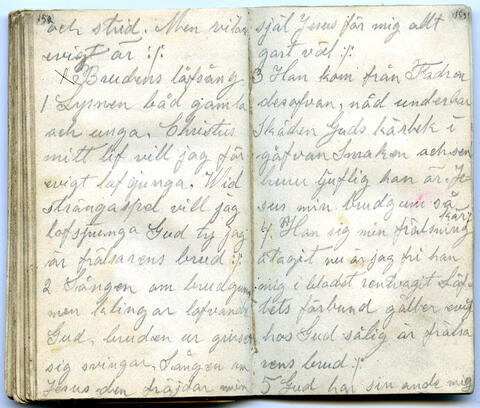 152
och strid. Men vilan
evigt är :/:
X Brudens lofsång
1 Lysnen båd gamla
och unga, Christus
mitt lif vill jag för
evigt lofsjunga. Wid
strängaspel vill jag
lofsjunga Gud ty jag
är frälsarens brud :/:
2 Sången om brudgum
men klingar lofvande
Gud, bruden ur
sig svingar. Sången om
Jesus den fröjdar min
153
själ Jesus för mig allt
gort väl :/:
3 Han kom från Fadren
derofvan, nåd underbar
Skåden Guds kärlek i
gåfvan Smaken och sen
huru ljuflig han är Je-
sus min brudgum så
kär :/:
4 Han sig min frälsning
åtagit nu är jag fri han
mig i blodet rentvagit Löf-
tets förbund gäller evigt
hos Gud sälig är frälsa
rens brud :/:
5 Gud har sin ande mig